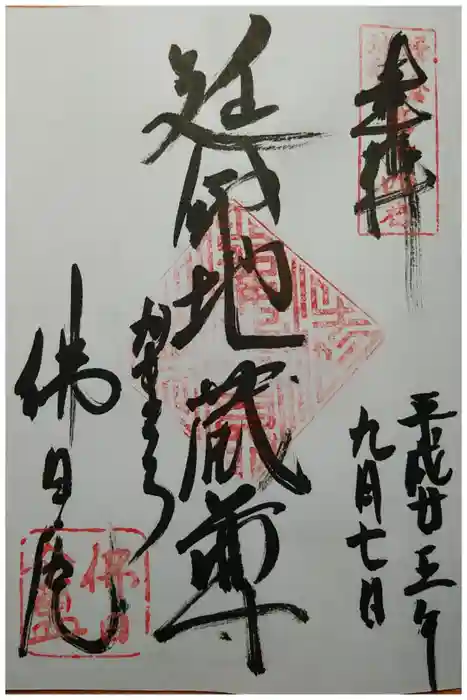 奉拝
平成廿三年
九月七日
延命地蔵尊
かまくら
佛日庵